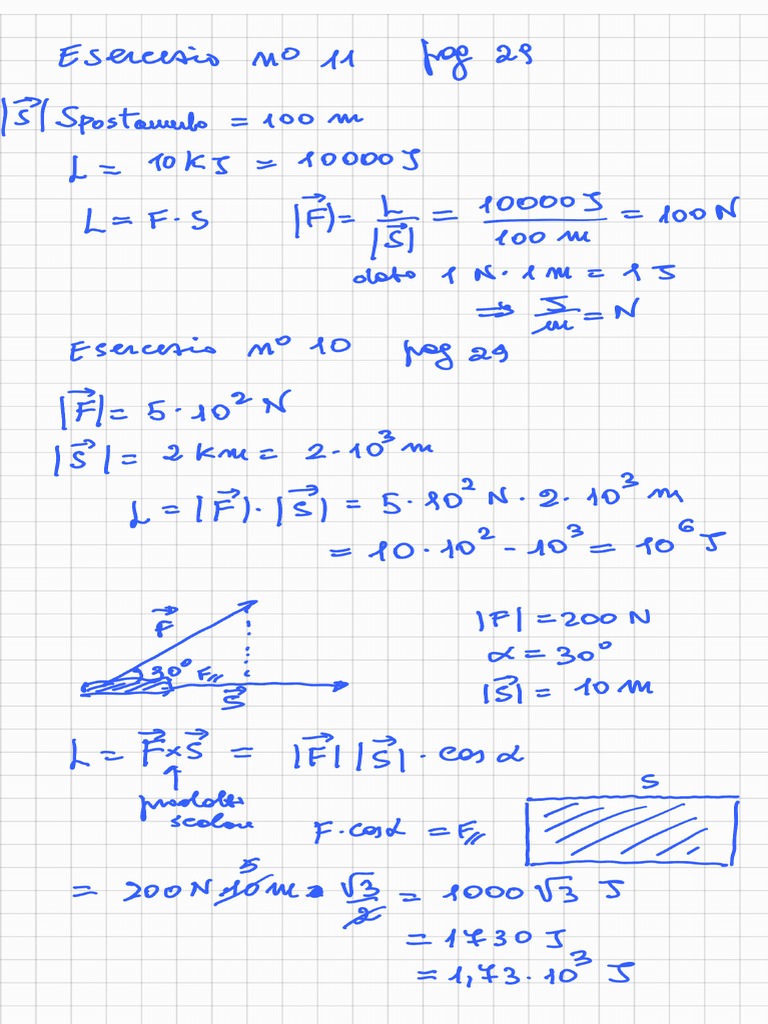 Esercizio n° 11 pag 29
|S⃗| Spostamento = 100 m
L = 10 KJ = 10000 J
L = F · S |F⃗| = L/|S⃗| = 10000 J/100 m = 100 N
dato 1 N · 1 m = 1 J
⇒ J/m = N
Esercizio n° 10 pag 29
|F⃗| = 5 · 10² N
|S⃗| = 2 Km = 2 · 10³ m
L = |F⃗| · |S⃗| = 5 · 10² N · 2 · 10³ m
= 10 · 10² - 10³ = 10⁶ J
F⃗
30° F//
S⃗
|F| = 200 N
α = 30°
|S⃗| = 10 m
L = F⃗ × S⃗ = |F⃗| |S⃗| · cos α
↑
prodotto
scalare
F · cos α = F//
S
= 200 N · 10 5 m · √3/2 = 1000 √3 J
= 1730 J
= 1,73 · 10³ J